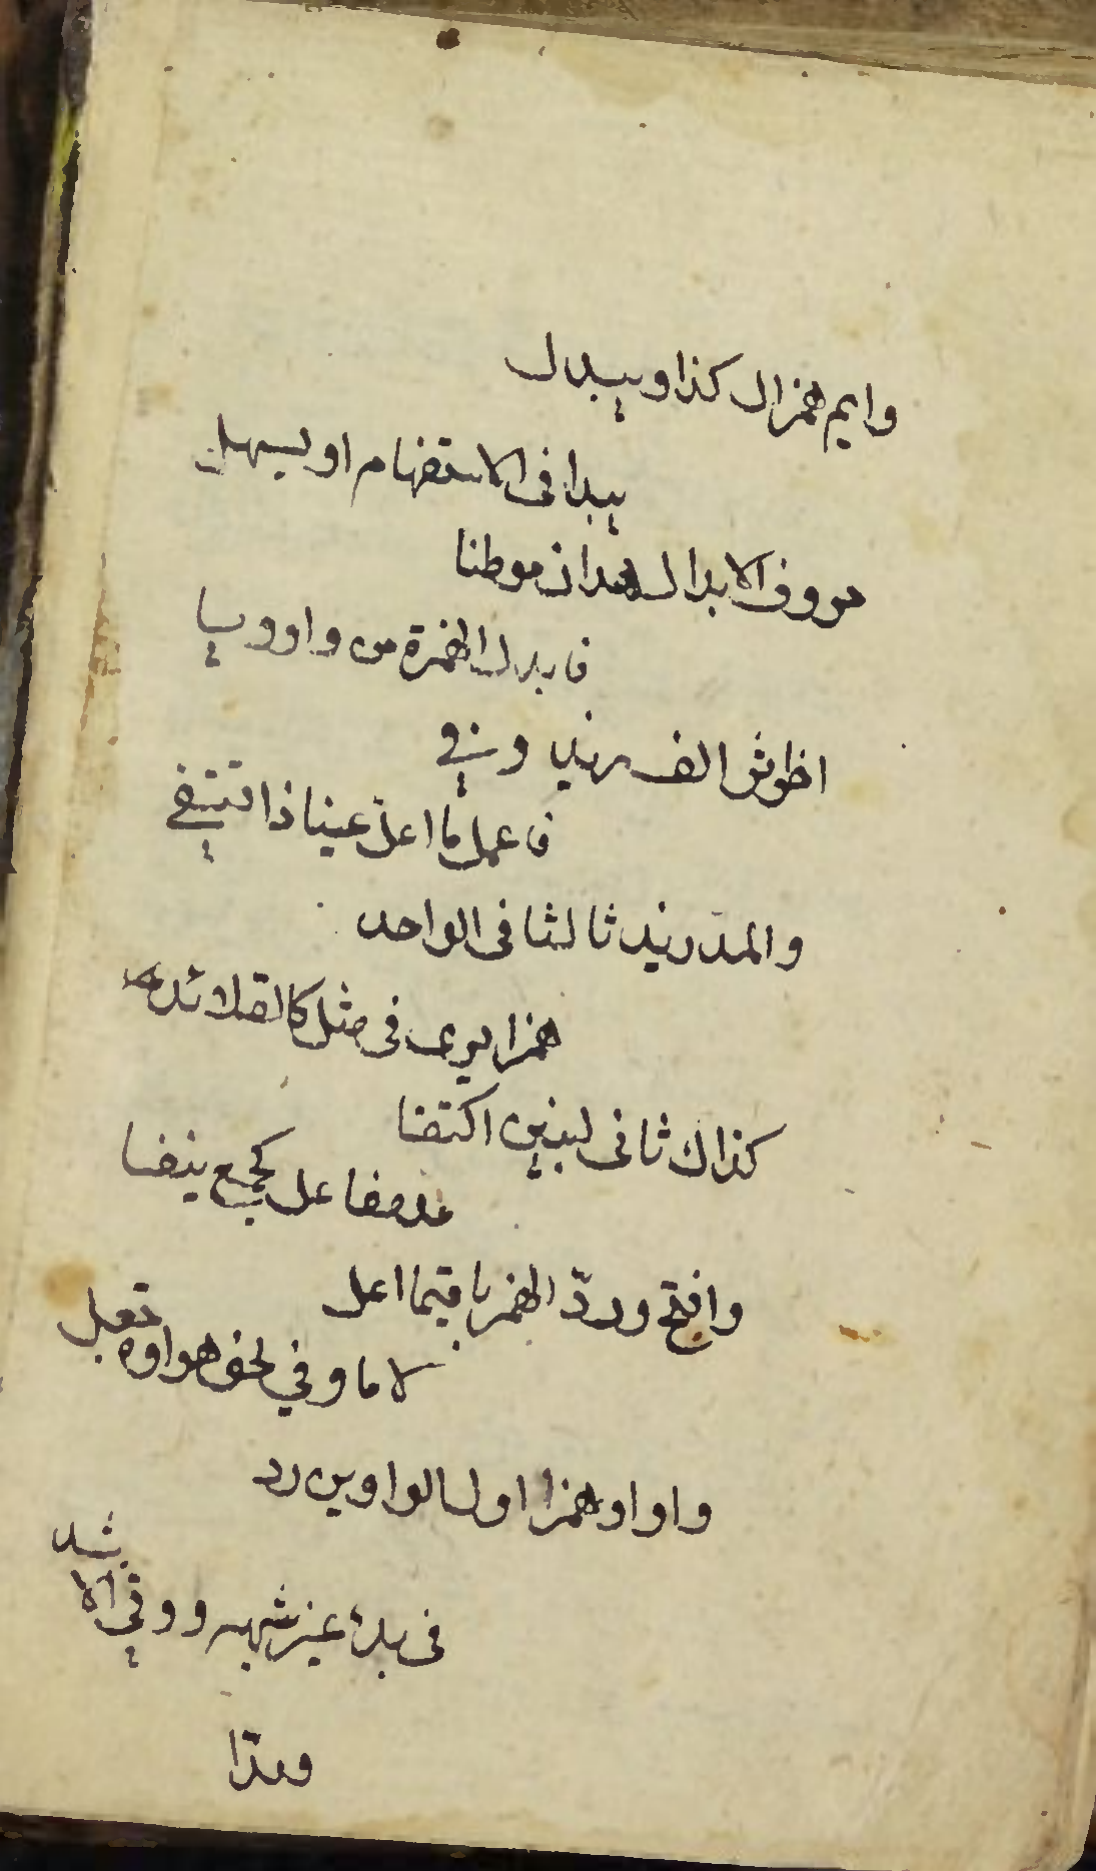 وايم همزال كذا ويبدل
يبدا في الاستفهام او يسهل
حروف الابدال هدات موطنا
فابدل الهمزة من واو ويا
اخراثر الف زيد وفي
فاعل ما اعل عينا ذا اقتفي
والمد زيد ثالثا في الواحد
همزا يرى في مثل كالقلائد
كذاك ثاني لينين اكتنفا
مد مفاعل كجمع نيفا
وافتح ورد الهمز يا فيما اعل
لاما وفي نحو هراوة جعل
واوا وهمزا اول الواوين رد
في بدء غير شبه ووفي الاشد
ومدا